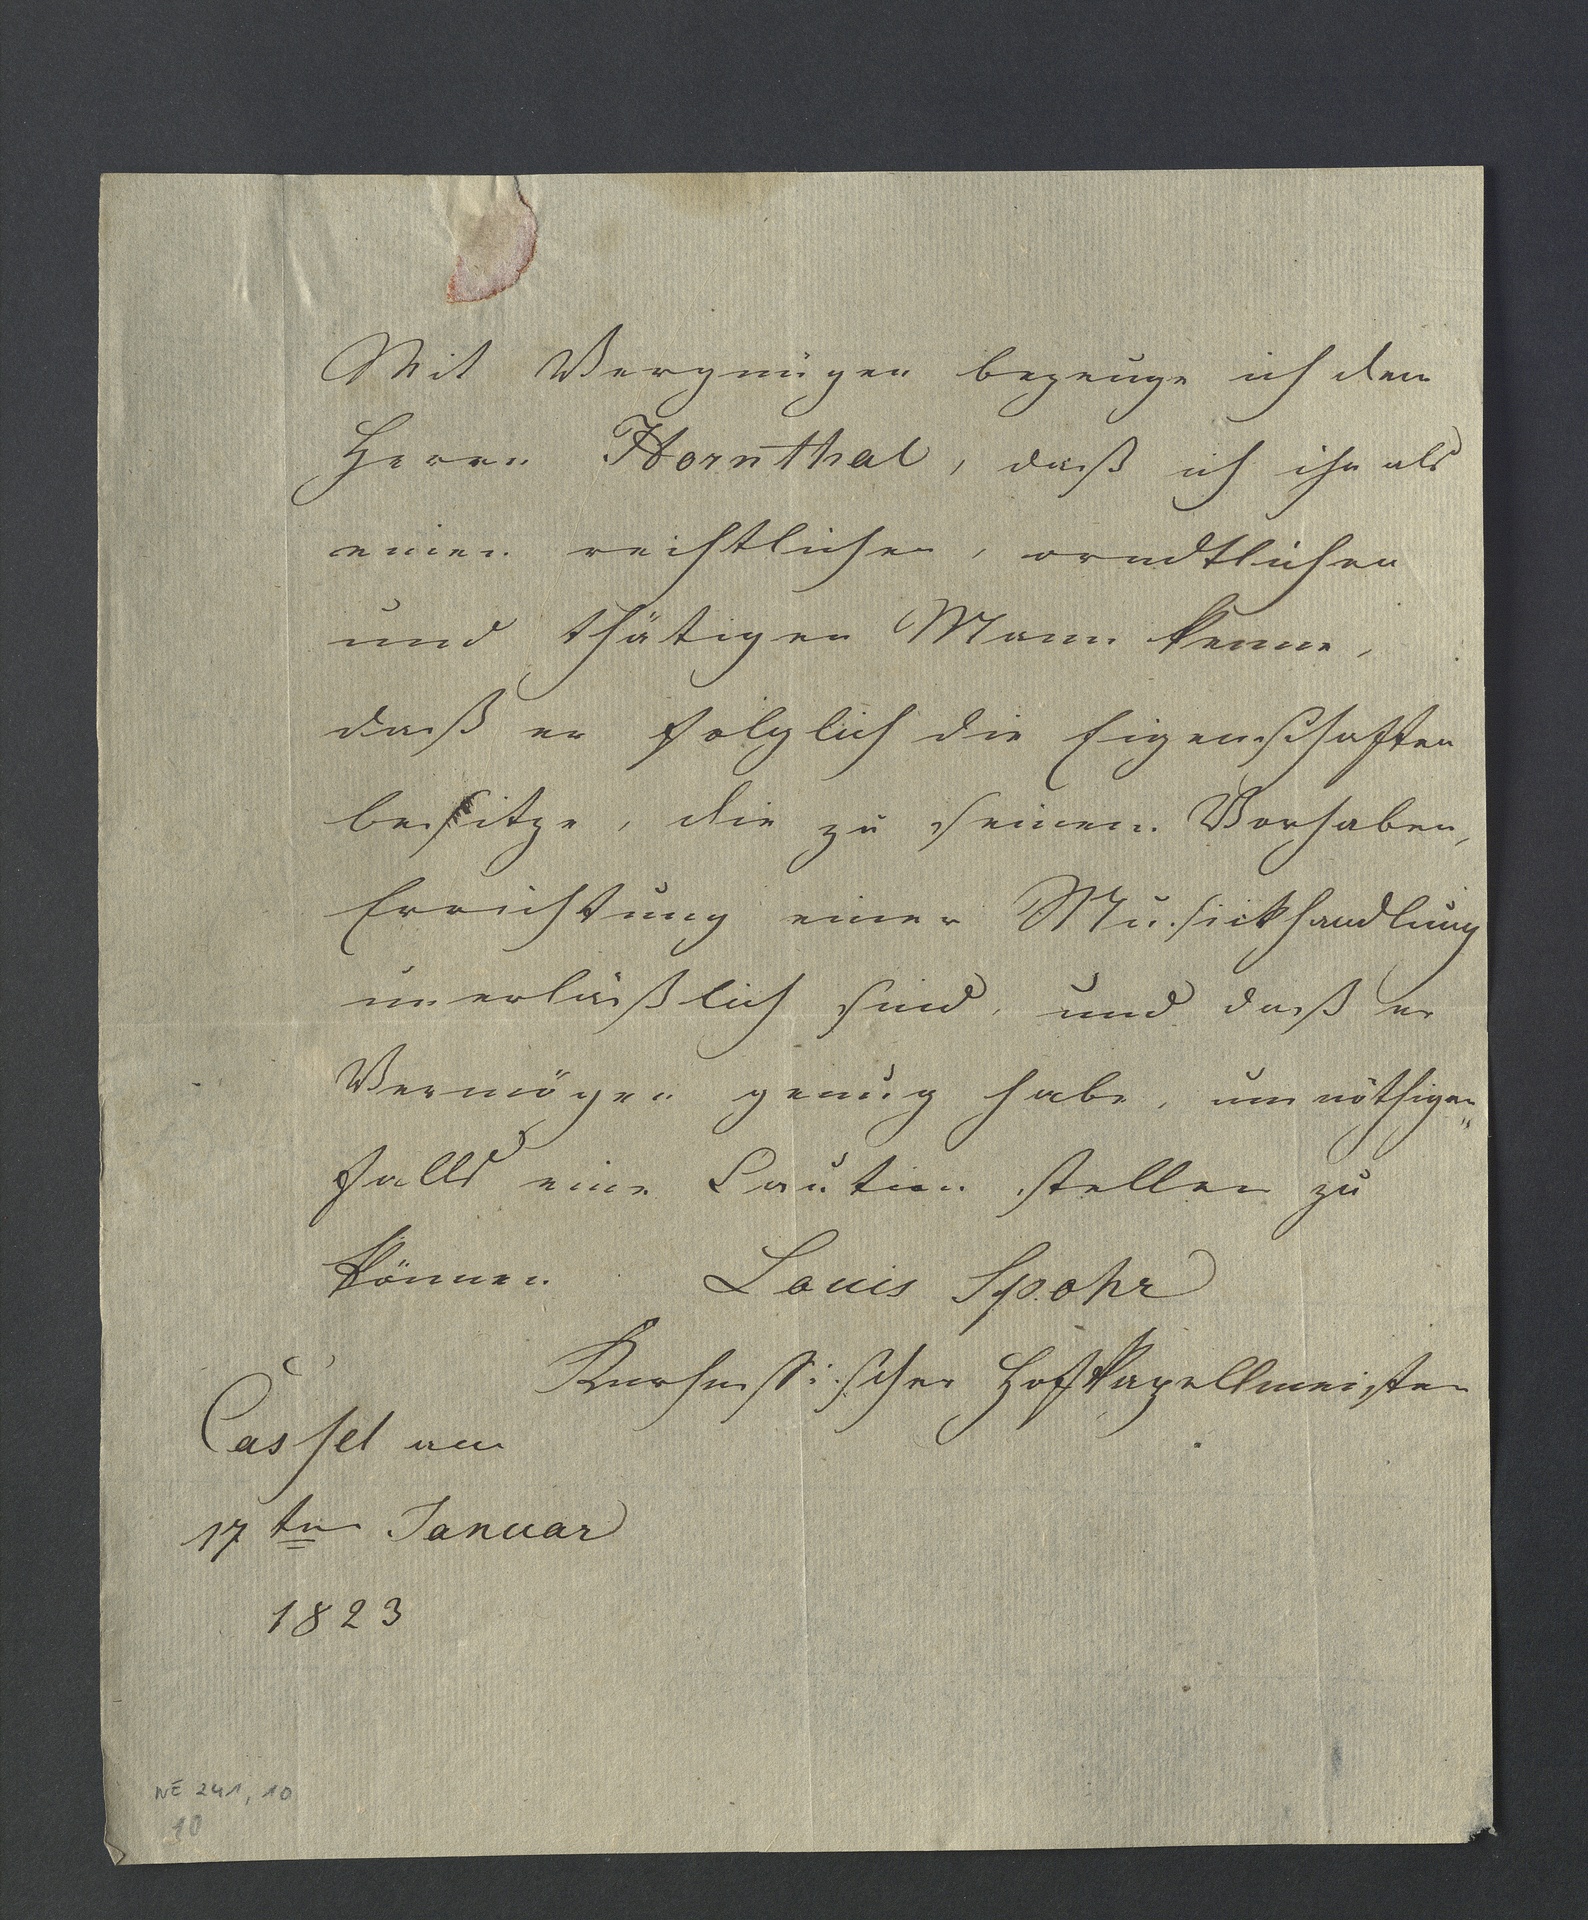 Mit Vergnügen bezeuge ich dem
Herrn Hornthal, daß ich ihn als
einen rechtlichen, orndtlichen
und thätigen Mann kenne,
daß er folglich die Eigenschaften
besitze, die zu seinem Vorhaben,
Errichtung einer Musickhandlung
unerläßlich sind, und daß er
Vermögen genug habe, um nöthigen„
falls eine Caution stellen zu
können. Louis Spohr
Kurhessischer Hofkapellmeister
Cassel am
17ten Januar
1823
NE 241, 10
10